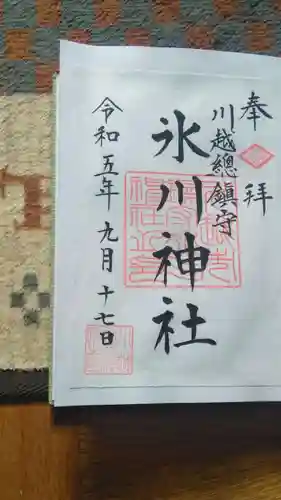 奉拝
川越總鎮守
氷川神社
令和五年九月十七日